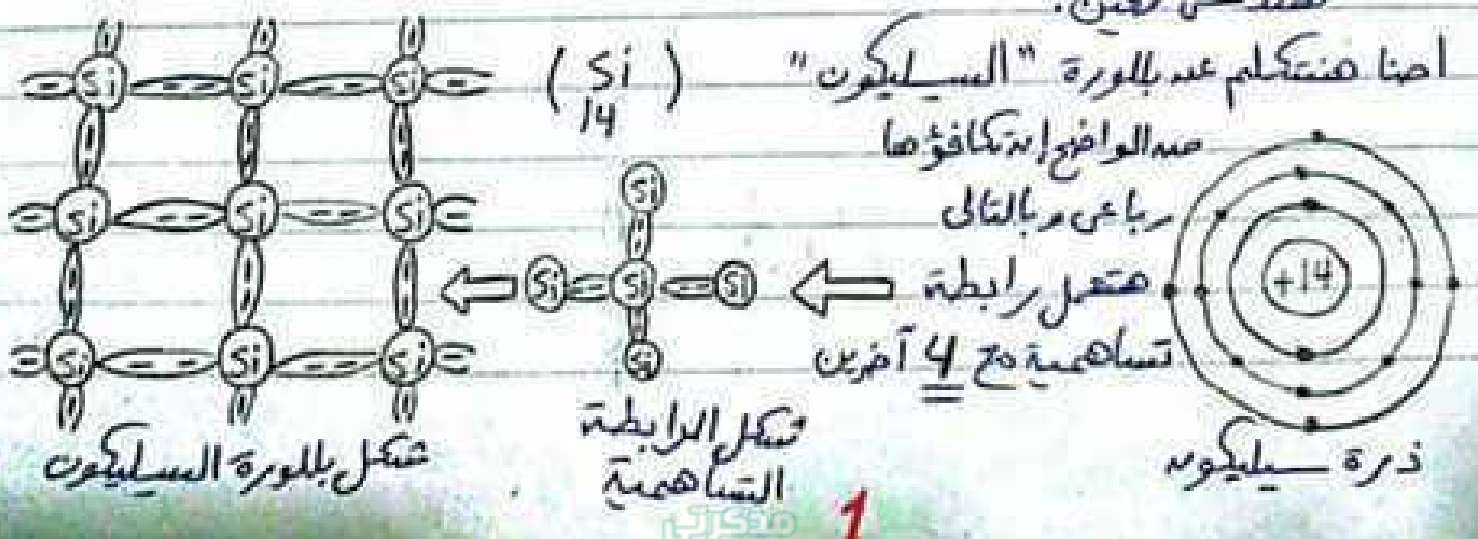 احنا هنتكلم عن بللورة "السيليكون"
(Si)
14
من الواضح إن تكافؤها
رباعى وبالتالى
هتعمل رابطة
تساهمية مع 4 آخرين
+14
ذرة سيليكون
Si
Si Si Si
Si
شكل الرابطة
التساهمية
Si Si Si
Si Si Si
Si Si Si
شكل بللورة السيليكون
مذكرتى
1